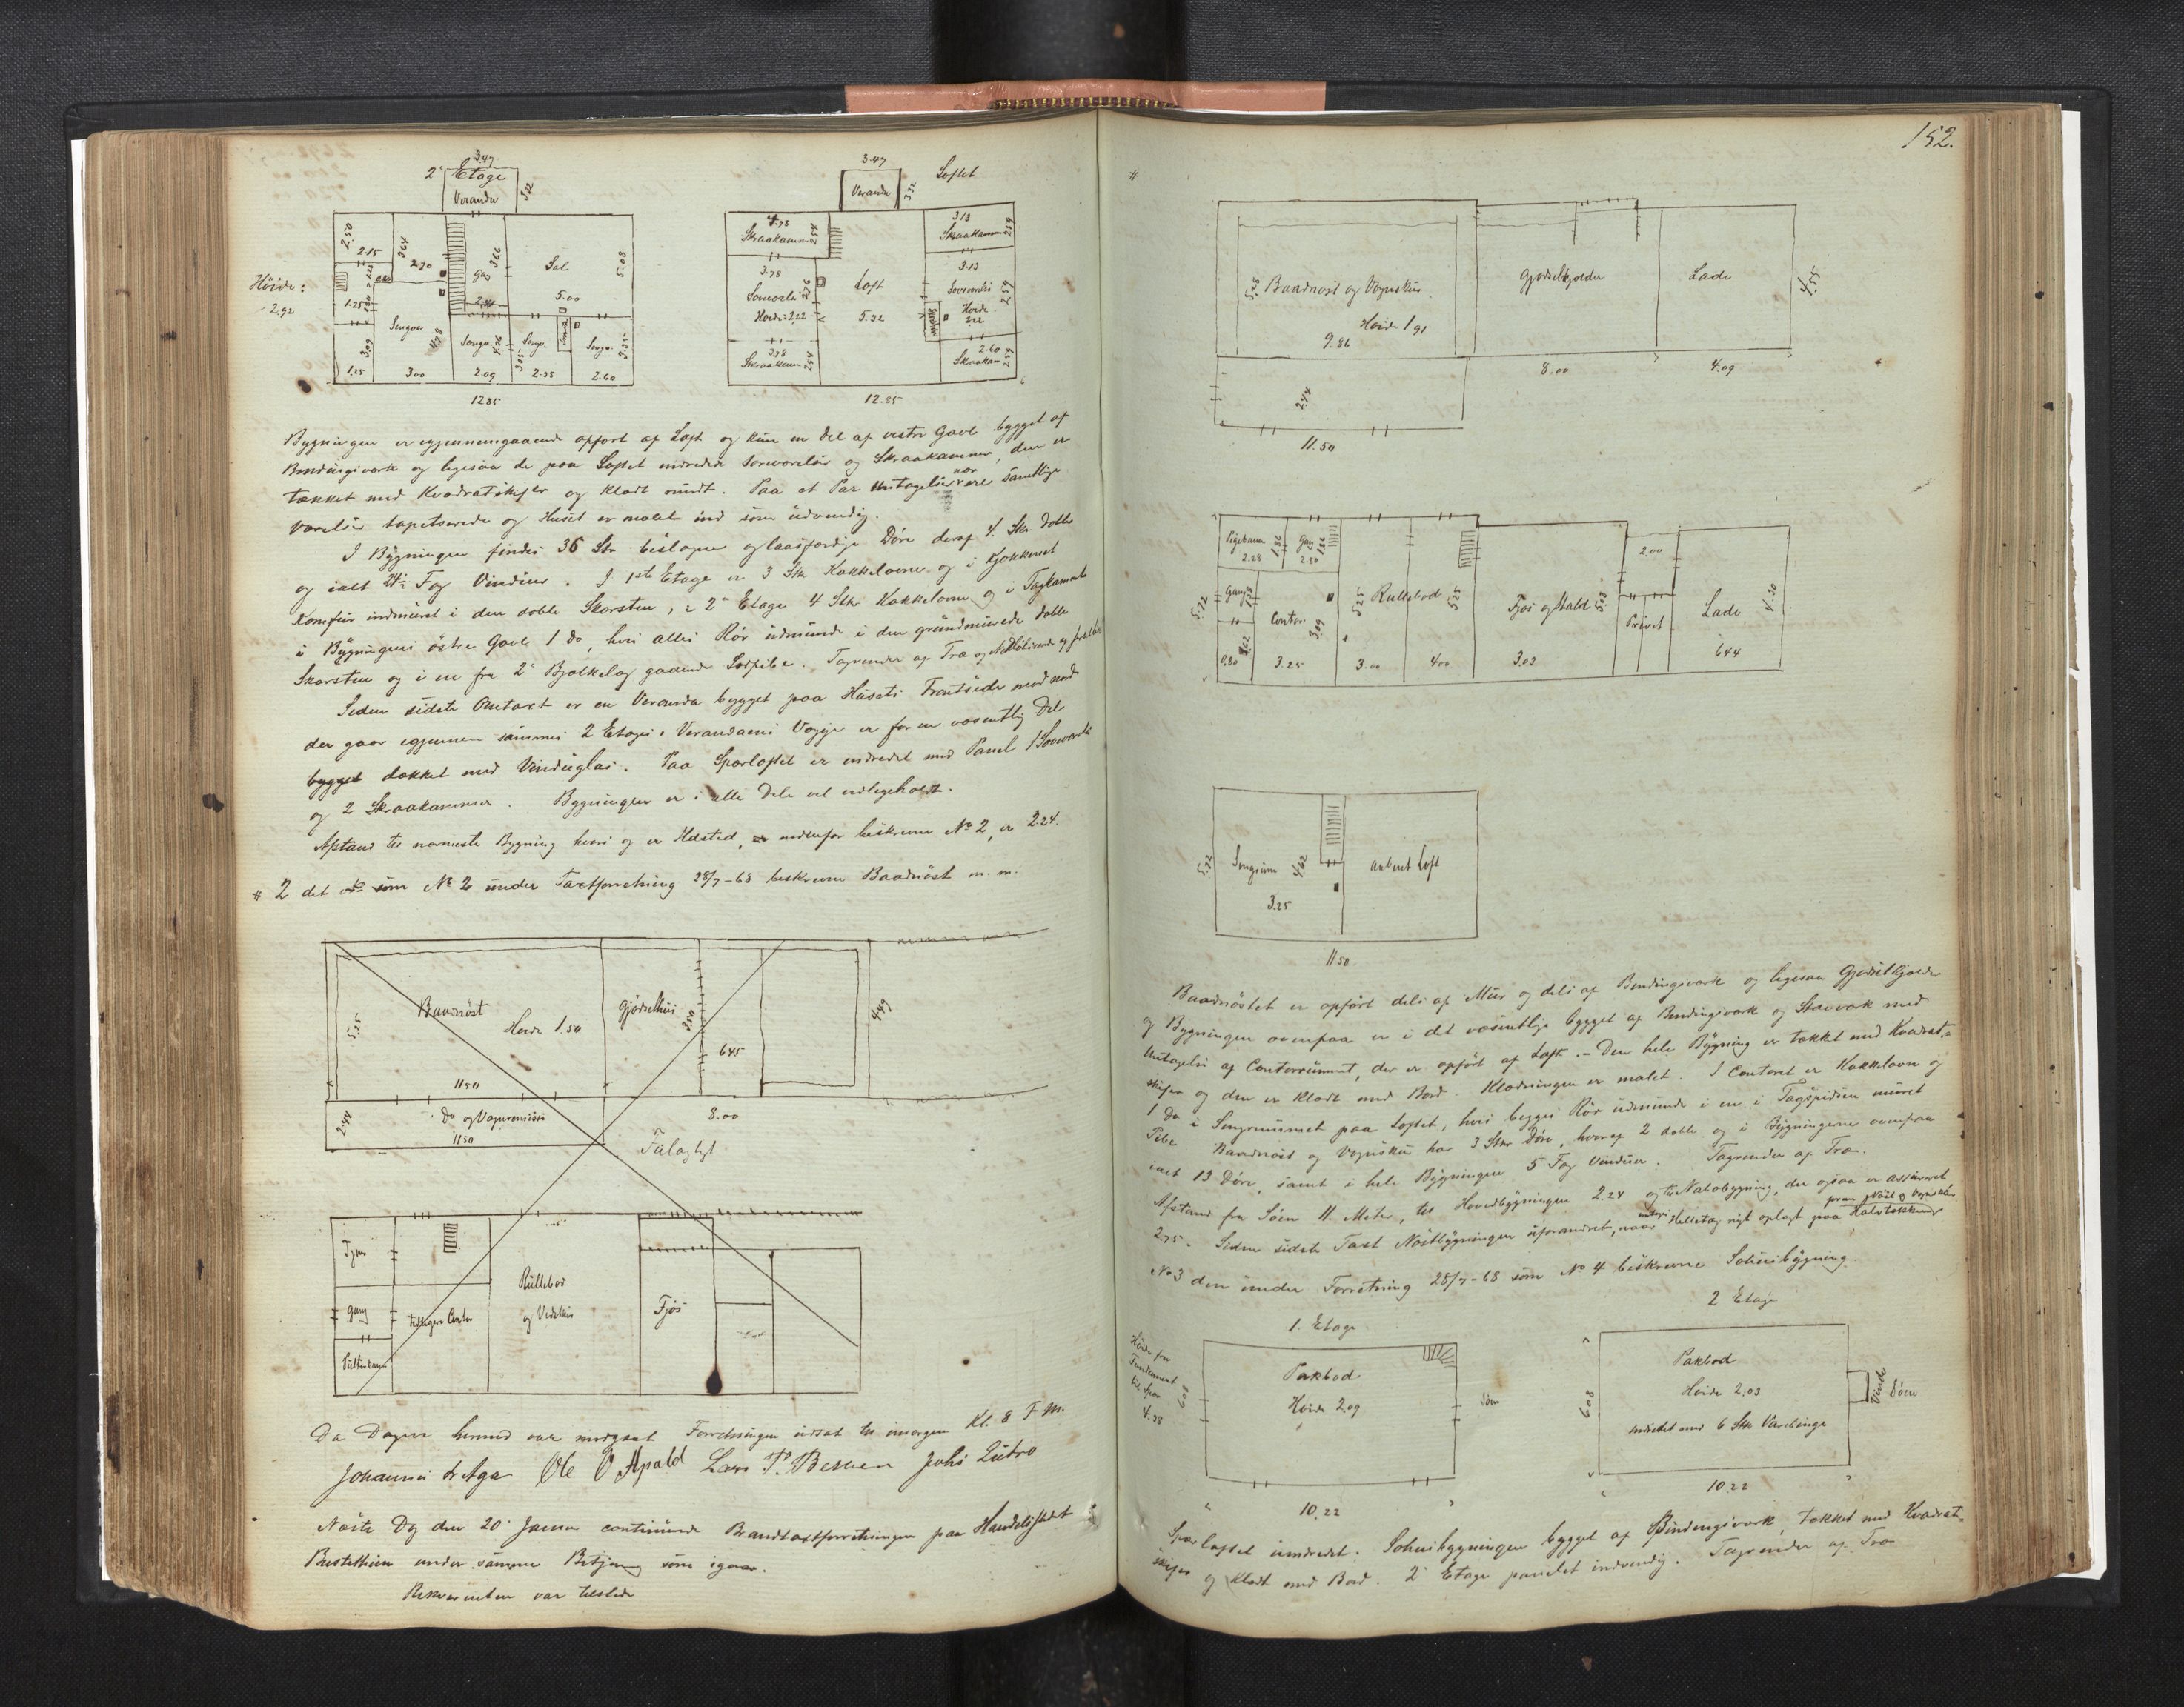 152.
2' Etage
3.47
Veranda
3.32
Høide:
2,92
2.50
2.15
3.64
2.30
3.66
Gang
Sal
5.08
5.00
1.25
Sengev
4.78
3.09
1.25
3.00
2.09
2.35
2.60
1285
Loftet
3.47
Veranda
3.32
4.78
Skraakammer
2.54
3.13
Skraakammer
2.59
3.78
Soveværelse
2.76
Høide 2.22
Loft
5.32
3.13
Soveværelse
2.59
Høide
2.22
3.78
Skraakam
2.54
2.60
Skraakam
2.59
12.85
Bygningen er igjennemgaaende opført af Laft og kun en Del af vestre Gavl bygget af
Bindingsværk og ligesaa de paa Loftet indredede Soveværelser og Skraakammer, den er
tækket med Kvadratskifer og klædt rundt. Paa et Par Undtagelser nær ere samtlige
Værelser tapetserede og Huset er malet ind som udvendig.
I Bygningen findes 36 Stk beslagne og laasfærdige Døre deraf 4 Stk doble
og ialt 24 Fag Vinduer. I 1ste Etage er 3 Stk Kakkelovne og i Kjøkkenet
Komfur indmuret i den doble Skorsten, i 2' Etage 4 Stk Kakkelovne og i Tagkammeret
i Bygningens østre Gavl 1 do, hvis alles Rør udmunde i den grundmurede doble
Skorsten og i en fra 2' Bjælkelag gaaende Pibe. Tagrender af Træ og
Siden sidste Omtaxt er en Veranda bygget paa Husets Frontside mod nord
der gaar igjennem sammes 2 Etager. Verandaens Vægge er for en væsentlig Del
bygget dækket med Vinduglas. Paa Sparloftet er indredet med Panel 1 Soveværelse
og 2 Skraakammer. Bygningen er i alle Dele vel vedligeholdt.
Afstand til nærmeste Bygning hvori og er Ildsted, er nedenfor beskrevne No 2, er 2.24.
# 2 det som No 2 under Taxtforretning 28/7-68 beskrevne Baadnøst m. m.
Baadnøst
Høide 1.50
5.25
Gjødselhus
3.50
645
4.49
1150
2.44
Do og Vognremisse
1150
8.00
Falagtigt
Gang
Rullebod
og Vedskur
Fjøs
Da Dagen hermed var medgaaet Forretningen udsat til imorgen Kl. 8 F.M.
Johannes Aga Ole O Apald Lars P. Johs Lutro
Næste Dag den 20' Januar continuerede Brandtaxtforretningen paa Handelsstedet
under samme Betjening som igaar.
Rekvirenten var tilstede
#
5.25
Baadnøst og Vognskur
Høide 1.91
9.86
Gjødselkjælder
Lade
4.55
8.00
4.09
2.44
11.50
Pigekam
2.28
1.86
Gang
2.80
1.86
Gang
5.72
Contor
3.09
5.25
Rullebod
5.25
Fjøs og Stald
5.03
2.00
Privet
Lade
4.30
0.80
3.25
3.00
400
3.03
644
5.72
Sengerum
4.62
3.25
aabent Loft
1150
Baadnøstet er opført dels af Mur og dels af Bindingsværk og ligesaa Gjødselkjælder
og Bygningen ovenpaa er i det væsentlige bygget af Bindingsværk og Stavværk med
Undtagelse af Contorrummet, der er opført af Laft. - Den hele Bygning er tækket med Kvadrat-
skifer og den er klædt med Bord. Klædningen er malet. I Contoret er Kakkelovn og
1 Do i Sengrummet paa Loftet, hvis begges Rør udmunde i en i Tagspidsen muret
Pibe. Baadnøst og Vognskur har 3 Stk Døre, hvoraf 2 doble og i Bygningerne ovenpaa
ialt 13 Døre, samt i hele Bygningen 5 Fag Vinduer. Tagrender af Træ.
Afstand fra Søen 11 Meter, til Hovedbygningen 2.24 og til Nabobygning, der ogsaa er assureret
2.75. Siden sidste Taxt Nøstbygningen uforandret, naar Helletag nyt oplagt paa
No 3 den under Forretning 28/7-68 som No 4 beskrevne Søhusbygning.
1. Etage
2 Etage
Høide fra
Fundament
til Spær
4.38
6.08
Pakbod
Høide 2,09
Søen
10.22
6.08
Pakbod
Høide 2.03
indredet med 6 Stk Værelser
Vinde
Søen
10.22
Spærloftet uindredet. Søhusbygningen bygget af Bindingsværk, tækket med Kvadrat-
skifer og klædt med Bord. 2' Etage panelet indvendig. Tagrender af Træ